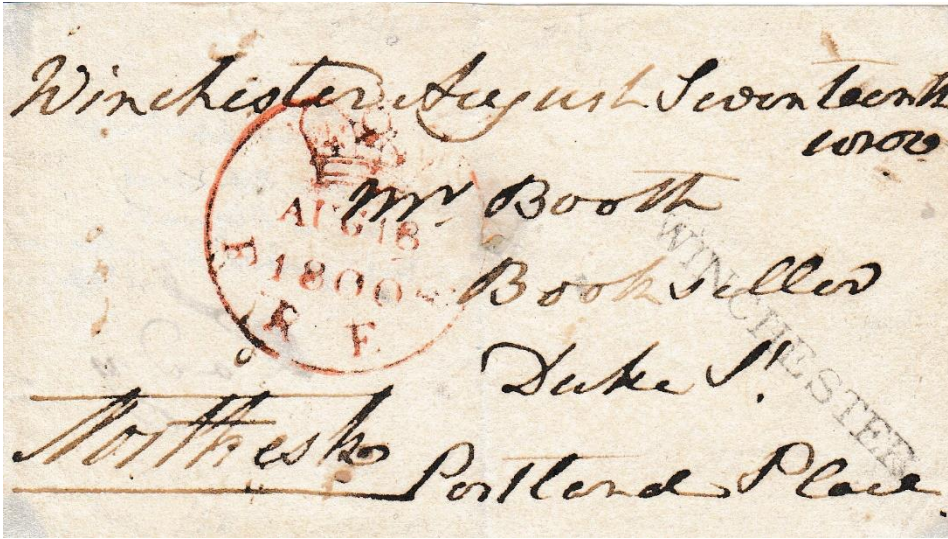 Winchester August Seventeenth
1800
AUG 18
1800
F R E
Mr Booth
Bookseller
Duke St.
Portland Place
Northesk
WINCHESTER